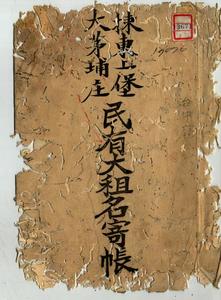 揀東上堡
大茅埔庄
民有大租名寄帳